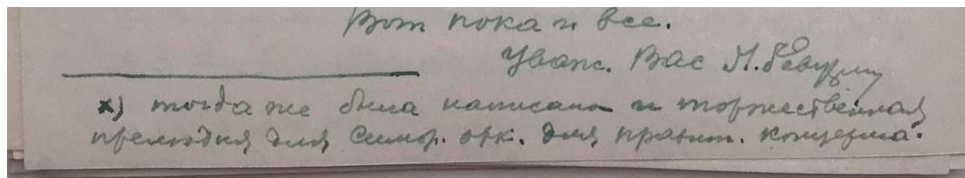 Вот пока и все.
Уваж. Вас М. Ревуцкий
х) тогда же была написана и торжественная
прелюдия для симф. орк. для правит. концерта.